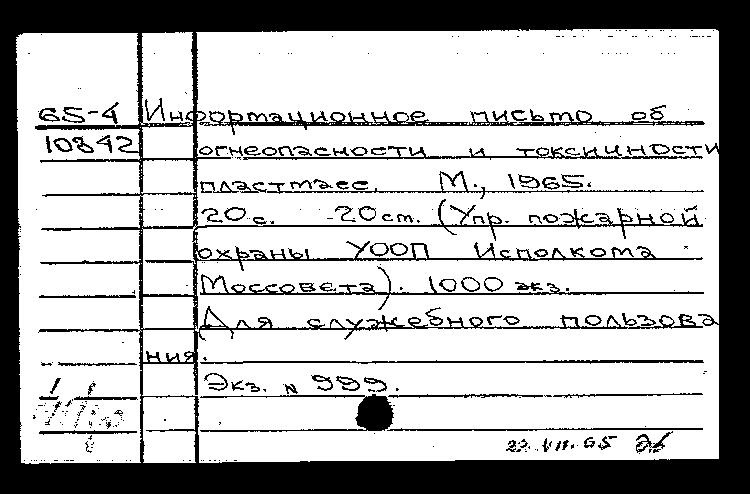 65-4 Информационное письмо об
10842 огнеопасности и токсичности
пластмасс. М., 1965.
20 с. 20 см. (Упр. пожарной
охраны УООП Исполкома
Моссовета). 1000 экз.
Для служебного пользова
ния.
Экз. N 999.
22.VII.65